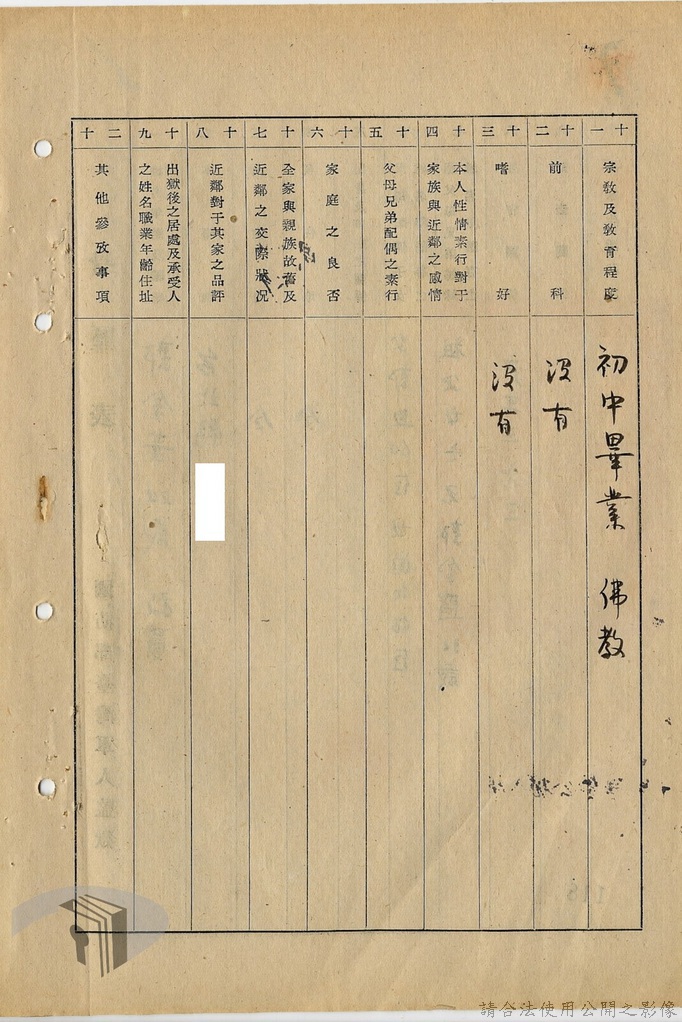 十一
宗教及教育程度
初中畢業 佛教
十二
前科
沒有
十三
嗜好
沒有
十四
本人性情素行對于
家族與近鄰之感情
十五
父母兄弟配偶之素行
十六
家庭之良否
十七
全家與親族故舊及
近鄰之交際狀況
十八
近鄰對于其家之品評
十九
出獄後之居處及承受人
之姓名職業年齡住址
二十
其他參攷事項
請合法使用公開之影像